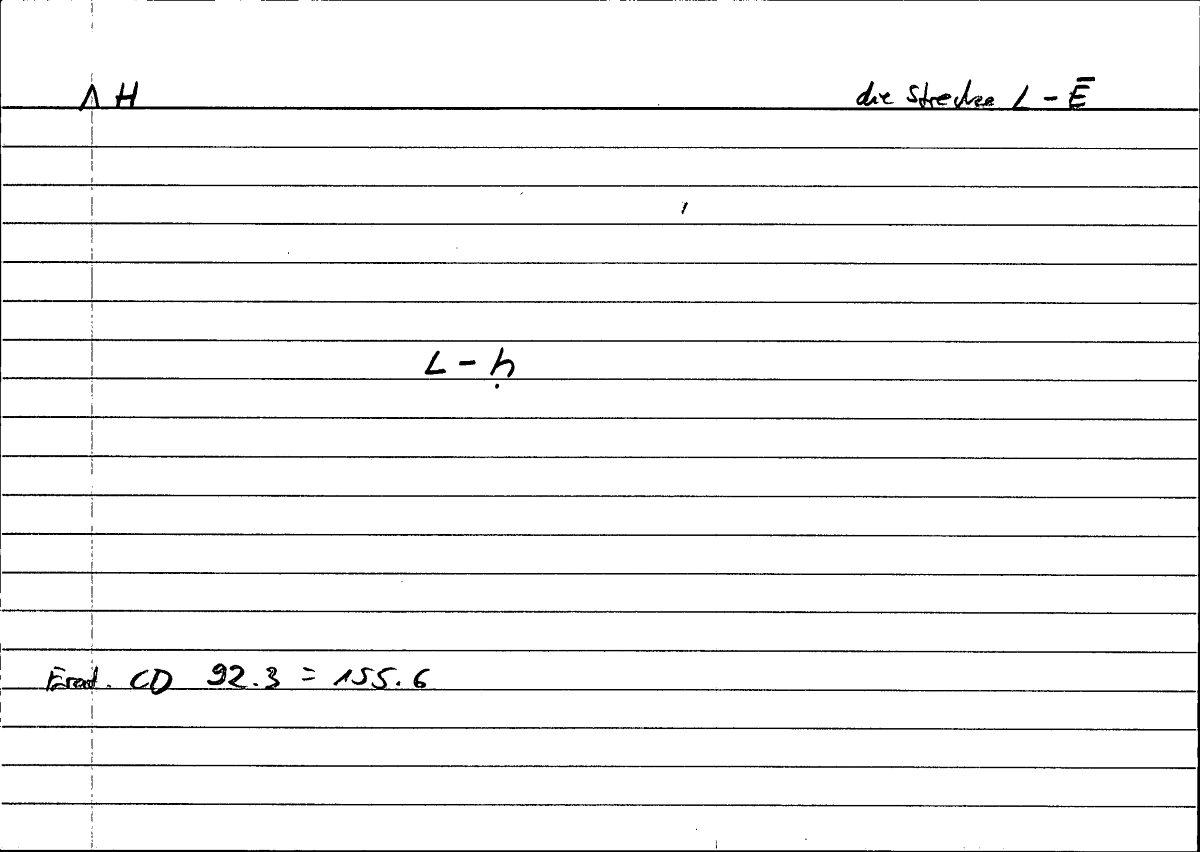 Λ H die Strecke L - Ē
L - ḥ
CD 92.3 = 155.6